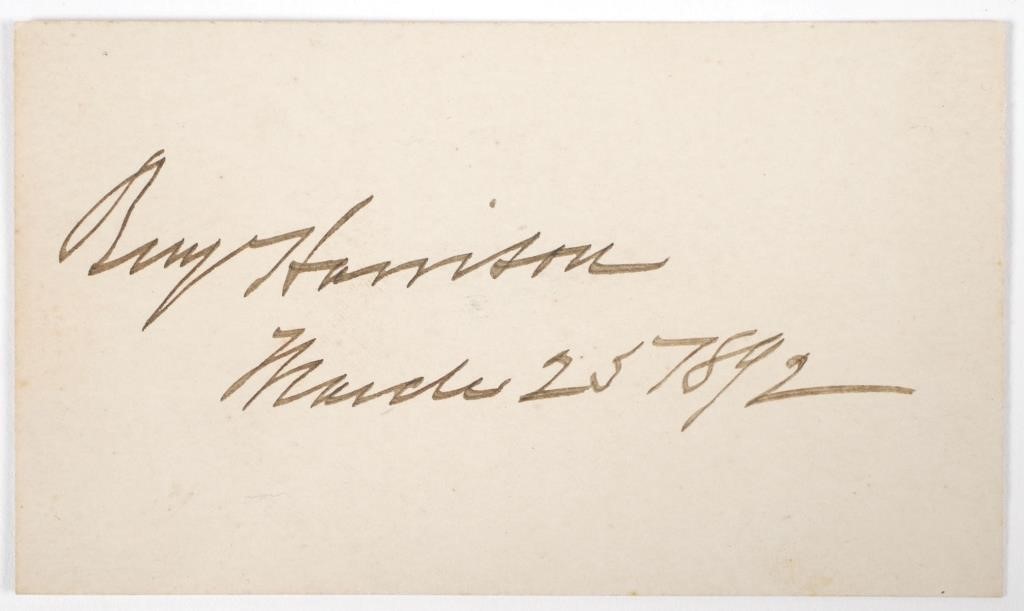 Benj Harrison
March 25 1892